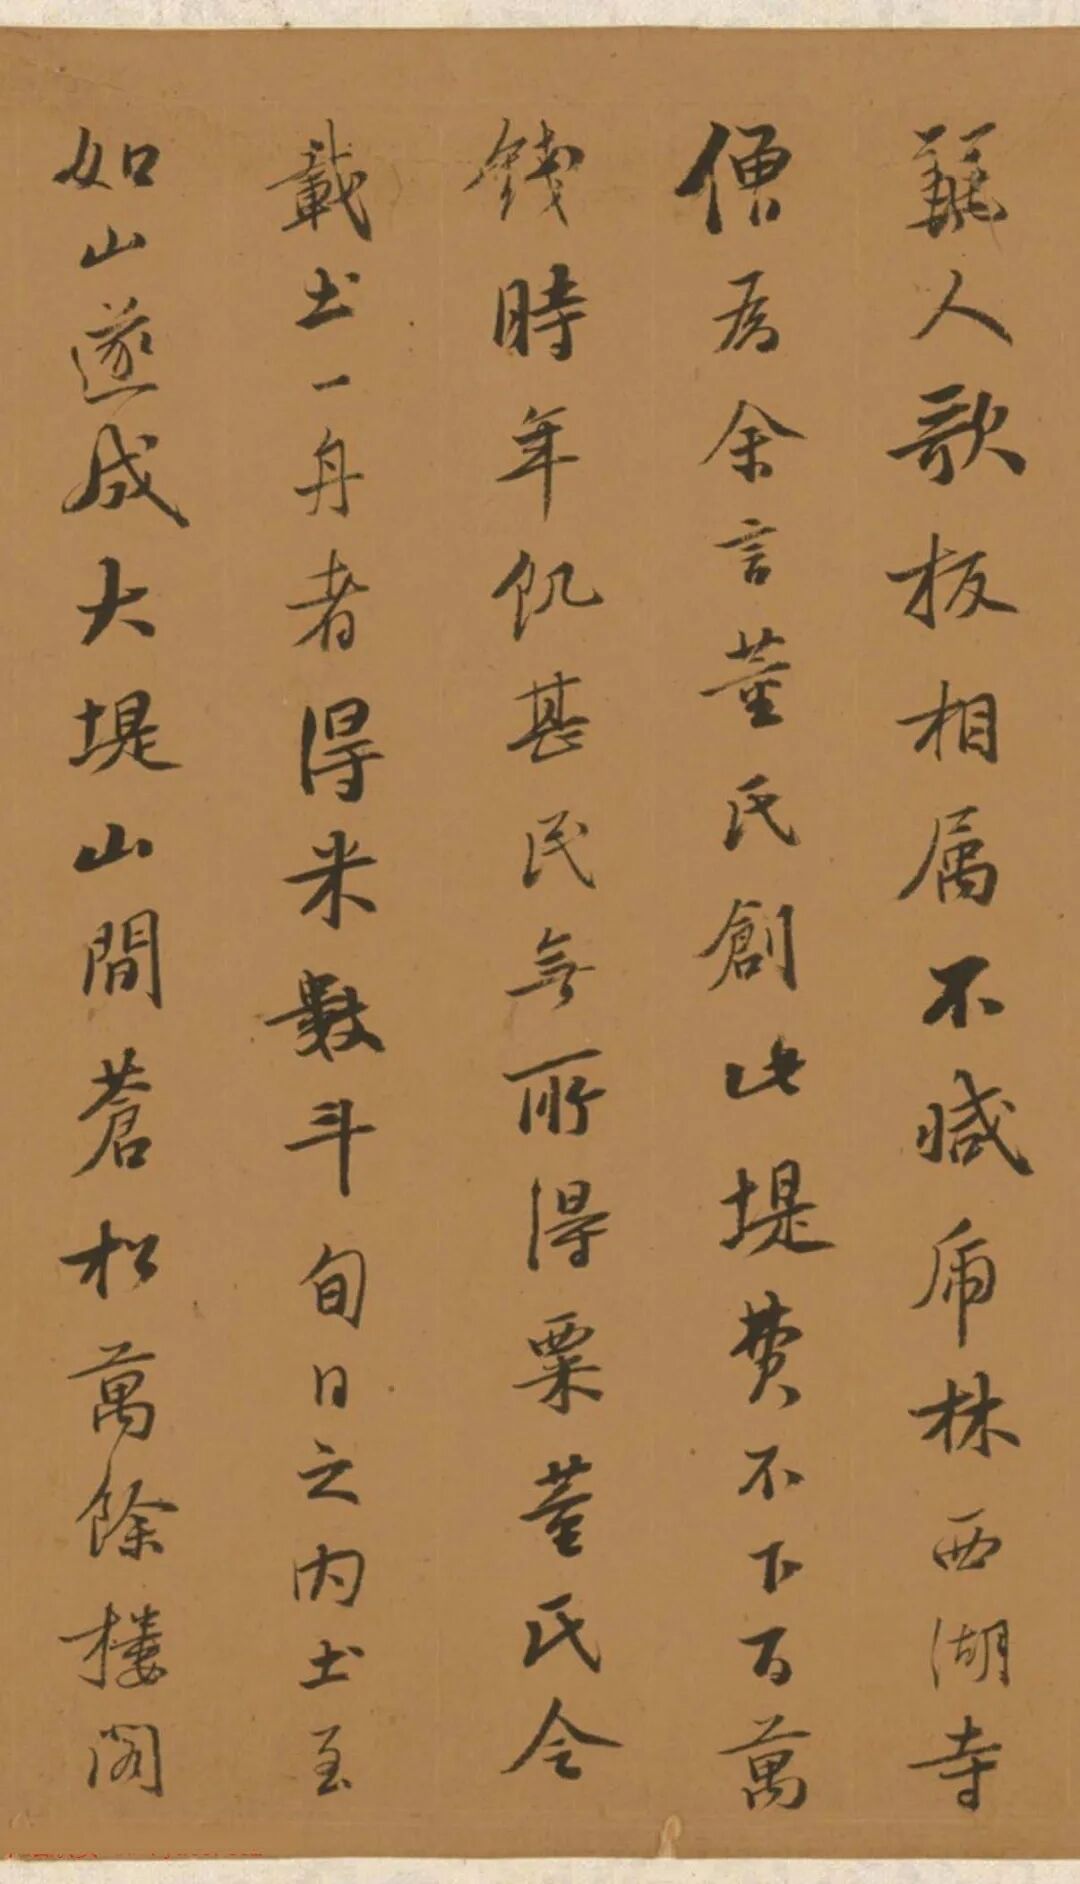 麗人歌板相属不減虎林西湖寺
僧為余言董氏創此堤費不下百萬
錢時年飢甚民無所得粟董氏令
載土一舟者得米數斗旬日之内土至
如山遂成大堤山間蒼松萬餘楼閣